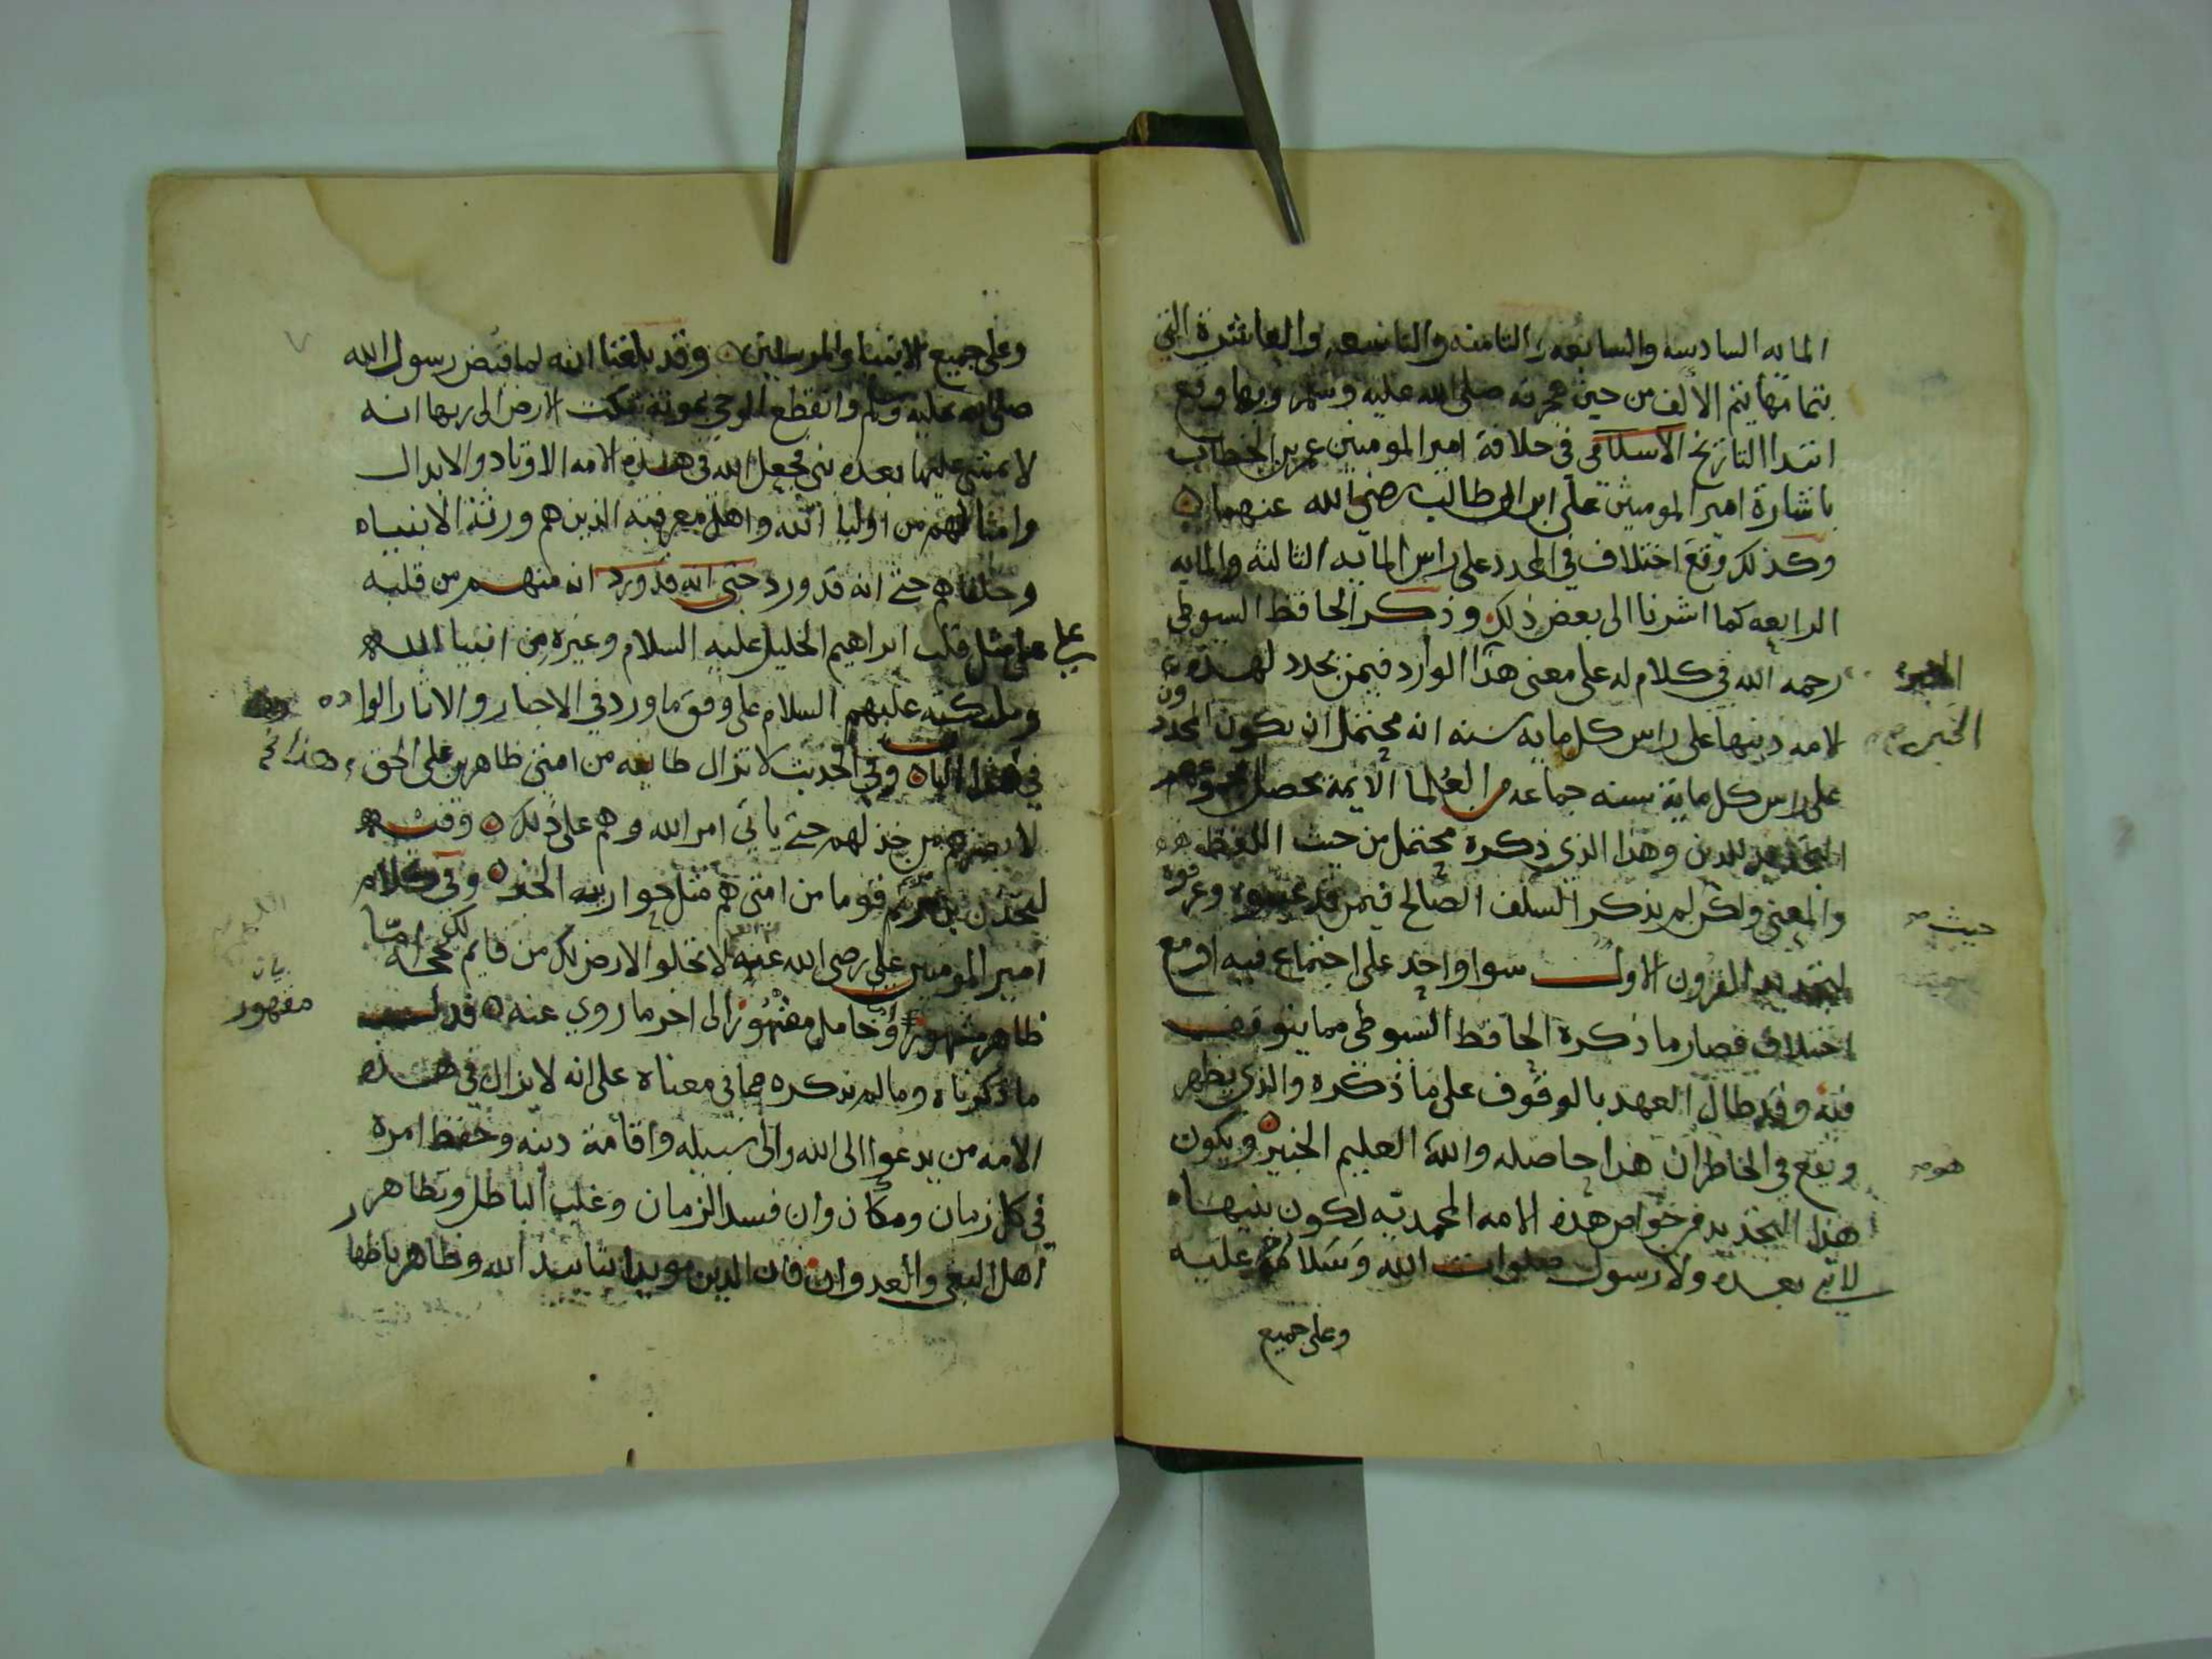 المايه السادسه والسابعه والثامنه والتاسعه والعاشرة التي
بتمامها يتم الالف من حين هجرته صلى الله عليه وسلم وبها وقع
ابتدا التاريخ الاسلامي في خلافة امير المومنين عمر بن الخطاب
باشارة امير المومنين علي ابن ابي طالب رضي الله عنهما
وكذلك وقع اختلاف في المجدد على راس المايه الثالثه والمايه
الرابعه كما اشرنا الى بعض ذلك وذكر الحافظ السيوطي
رحمه الله في كلام له على معنى هذا الوارد فيمن يجدد لهذه
الامه دينها على راس كل مايه سنه انه محتمل ان يكون المجددون
على راس كل ماية سنه جماعه من العلما الايمة يحصل بمجموعهم
التجديد للدين وهذا الذي ذكره محتمل من حيث اللفظ
والمعنى ولكن لم يذكر السلف الصالح فيمن قد عينوه وعرفوه
لتجديد القرون الاول سوا واحد على اجتماع فيه او مع
اختلاف فصار ما ذكره الحافظ السيوطي مما يتوقف
فيه وقد طال العهد بالوقوف على ما ذكره والذي يظهر
ويقع في الخاطر ان هذا حاصله والله العليم الخبير ويكون
هذا التجديد من خواص هذه الامه المحمديه لكون نبيها
لا نبي بعده ولا رسول صلوات الله وسلامه عليه
وعلى جميع
الخبر
حيث
هو
وعلى جميع الانبيا والمرسلين وقد بلغنا انه لما قبض رسول الله
صلى الله عليه وسلم وانقطع الوحي بموته بكت الارض الى ربها انه
لا يمشي عليها بعده نبي فجعل الله في هذه الامه الاوتاد والابدال
وامثالهم من اوليا الله واهل معرفته الذين هم ورثة الانبياء
وخلفاهم حتى انه قد ورد حتى انه قد ورد انه منهم من قلبه
على مثل قلب ابراهيم الخليل عليه السلام وغيره من انبيا الله
وملائكته عليهم السلام على وفق ما ورد في الاخبار والاثار الوارده
في هذا الباب وفي الحديث لا تزال طايفه من امتي ظاهرين على الحق
لا يضرهم من خذلهم حتى ياتي امر الله وهم على ذلك وفيه
ليجدن بن مريم قوما من امتي هم مثل حواريه الخبر وفي كلام
امير المومنين علي رضي الله عنه لا تخلو الارض لك من قايم لك بحجه اما
ظاهر مشهور او خامل مقهور الى اخر ما روي عنه قد
ما ذكرناه وما لم نذكره مما في معناه على انه لا يزال في هذه
الامه من يدعوا الى الله والى سبيله واقامة دينه وحفظ امره
في كل زمان ومكان وان فسد الزمان وغلب الباطل وتظاهر
اهل البغي والعدوان فان الدين مويدا بتاييد الله وظاهر باظها
على
هذا
بيان
مقهور